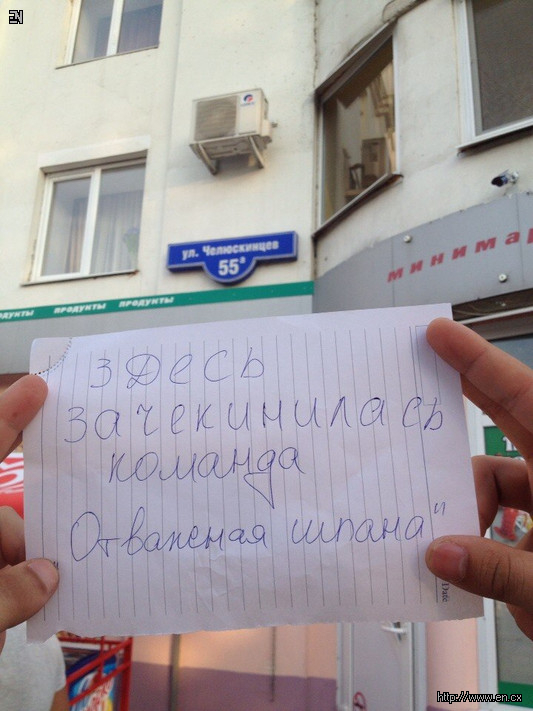 EN
ул. Челюскинцев
55а
минимар
продукты продукты продукты
здесь
зачекинилась
команда
„Отважная шпана"
Date
http://www.en.cx